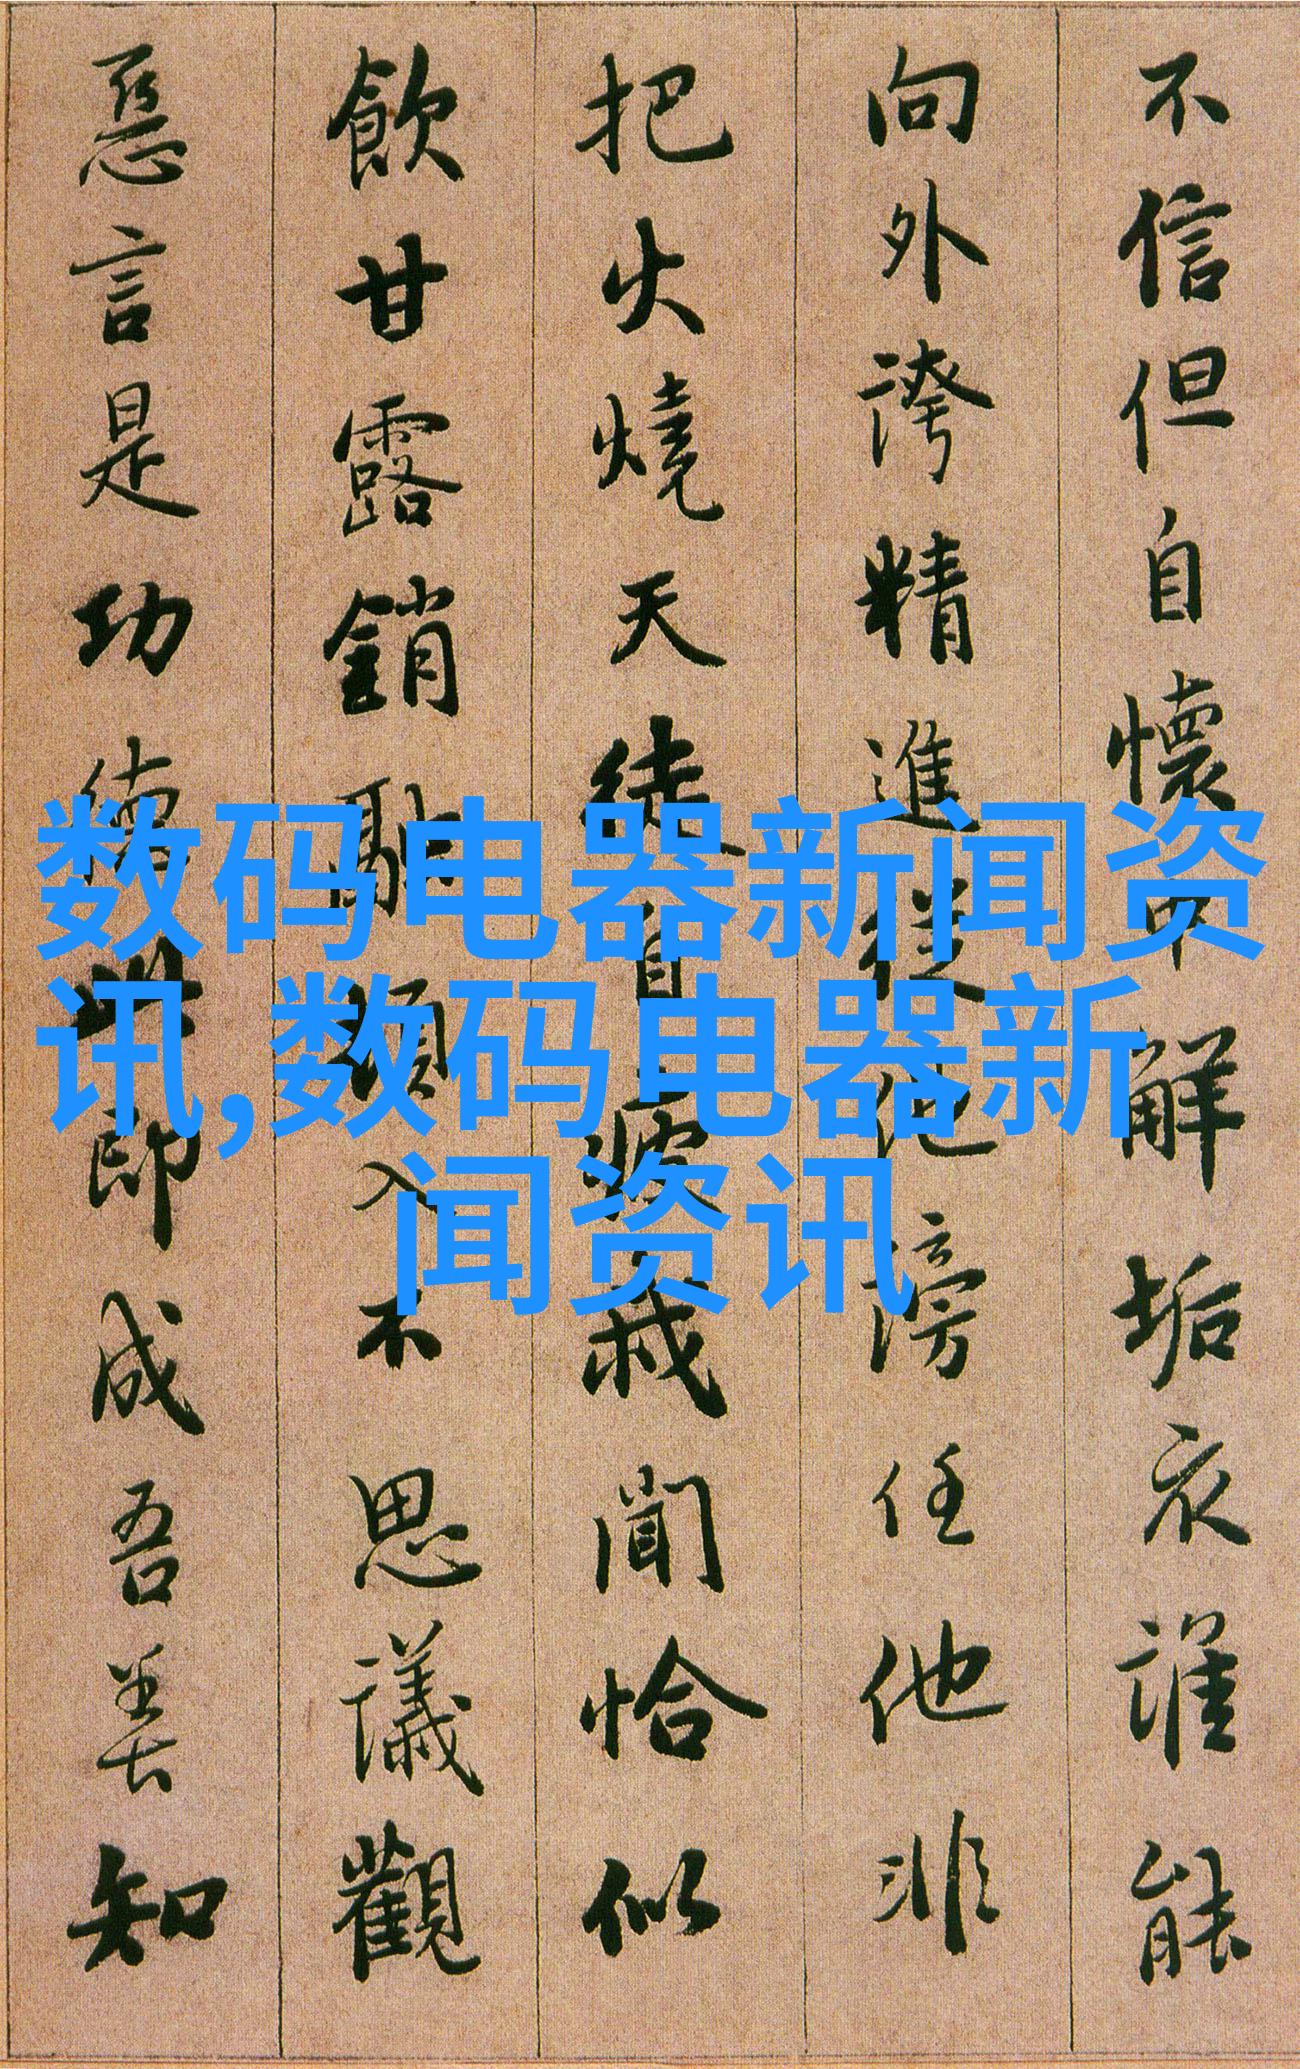 不信但自懷中解垢衣誰能
向外誇精進從他謗任他非
把火燒天徒自疲我聞恰似
飲甘露銷融頓入不思議觀
惡言是功德此即成吾善知
数码电器新闻资
讯,数码电器新
闻资讯